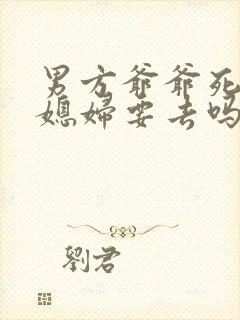 男方爷爷死
媳妇要去吗
劉君